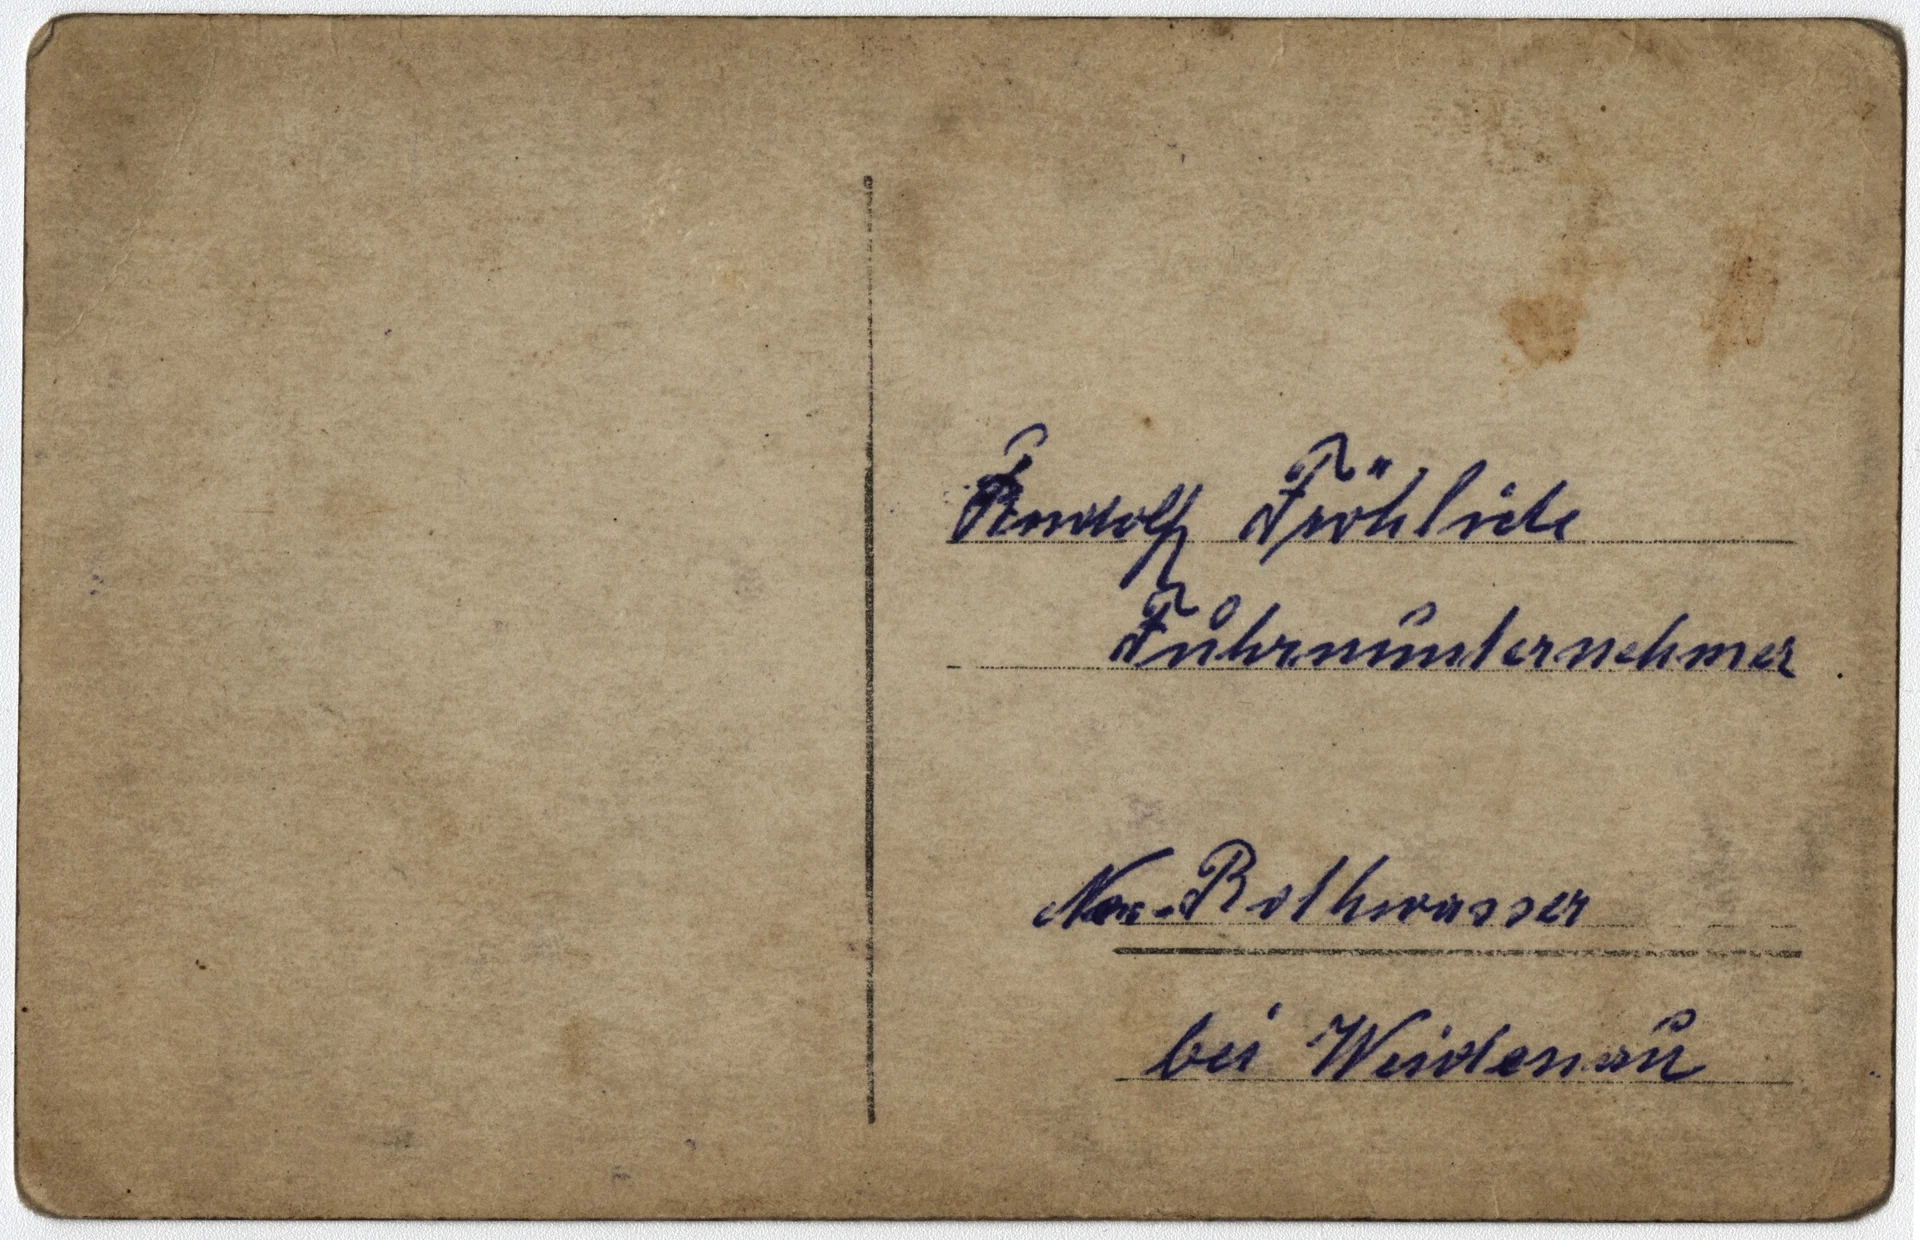 Rudolf Fröhlich
Fuhrnunternehmer
Neu-Rothwasser
bei Weidenau